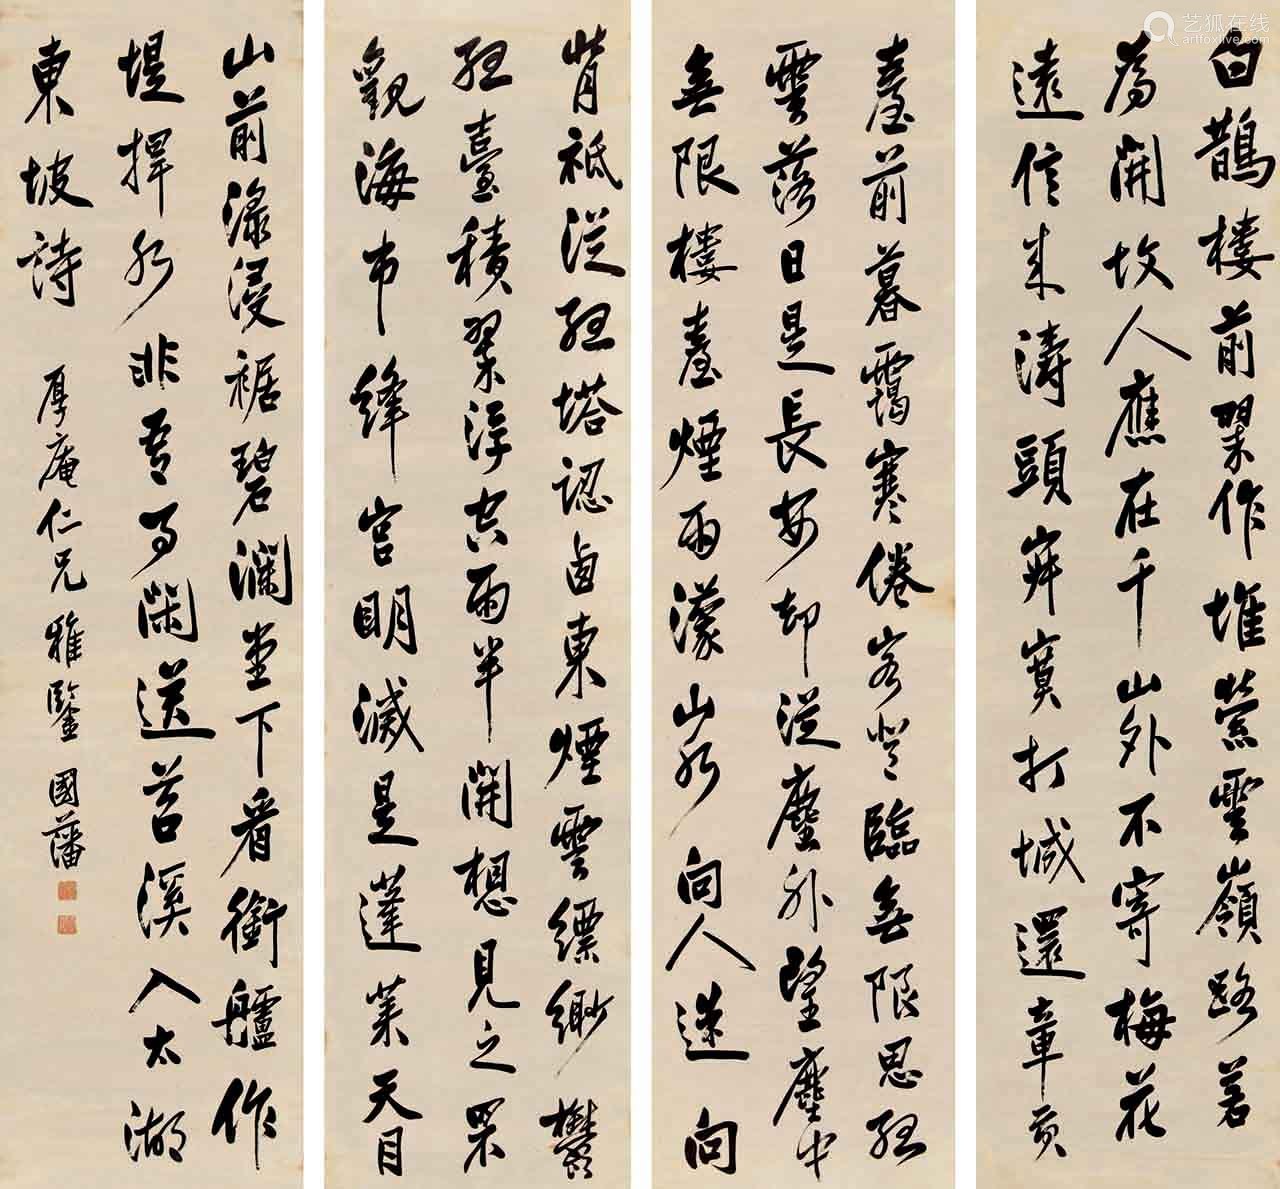 白鵲樓前翠作堆縈雲嶺路若
為開故人應在千山外不寄梅花
遠信来濤頭寂寞打城還章貢
臺前暮靄寒倦客登臨無限思孤
雲落日是長安却從塵外望塵中
無限樓臺煙雨濛山水向人迷向
背祗從孤塔認西東煙雲縹緲鬱
孤臺積翠浮空雨半開想見之罘
觀海市絳宮明滅是蓬萊天目
山前淥浸裾碧瀾堂下看銜艫作
堤捍水非吾事閑送苕溪入太湖
東坡詩 厚庵仁兄雅鑒 國藩
艺狐在线
artfoxlive.com